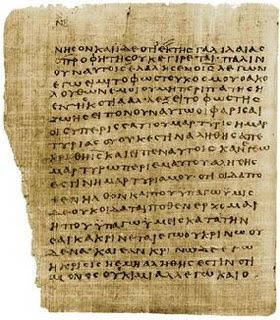 ΝΗϹΟΝΚΑΙΪΔΕΟΤΙΕΚΤΗϹΓΑΛΙΛΑΙΑϹ
ΟΠΡΟΦΗΤΗϹΟΥΚΕΓΕΙΡΕΤΑΙ ΠΑΛΙΝ
ΟΥΝΑΥΤΟΙϹΕΛΑΛΗϹΕΝΟΙϹΛΕΓΩΝ
ΕΓΩΕΙΜΙΤΟΦΩϹΤΟΥΚΟϹΜΟΥΟΑΚΟ
ΛΟΥΘΩΝΕΜΟΙΟΥΜΗΠΕΡΙΠΑΤΗϹΗ
ΕΝΤΗϹΚΟΤΙΑΑΛΛΕΞΕΙΤΟΦΩϹΤΗϹ
ΖΩΗϹΕΙΠΟΝΟΥΝΑΥΤΩΟΙΦΑΡΙϹΑΙ
ΟΙϹΥΠΕΡΙϹΕΑΥΤΟΥΜΑΡΤΥΡΕΙϹΗΜΑΡ
ΤΥΡΙΑϹΟΥΟΥΚΕϹΤΙΝΑΛΗΘΗϹΑΠΕ
ΚΡΙΘΗΙϹΚΑΙΕΙΠΕΝΑΥΤΟΙϹΚΑΝΕΓΩ
ΜΑΡΤΥΡΩΠΕΡΙΕΜΑΥΤΟΥΑΛΗΘΗϹ
ΕϹΤΙΝΗΜΑΡΤΥΡΙΑΜΟΥΟΤΙΟΙΔΑΠΟ
ΘΕΝΗΛΘΟΝΚΑΙΠΟΥΥΠΑΓΩΥΜΕΙϹ
ΔΕΟΥΚΟΙΔΑΤΑΙΠΟΘΕΝΕΡΧΟΜΑΙ
ΗΠΟΥΥΠΑΓΩΥΜΕΙϹΚΑΤΑΤΗΝ
ϹΑΡΚΑΚΡΙΝΕΤΑΙΕΓΩΟΥΚΡΙΝΩΟΥ
ΔΕΝΑΚΑΙΕΑΝΚΡΙΝΩΔΕΕΓΩ
ΗΚΡΙϹΙϹΗΕΜΗΑΛΗΘΗϹΕϹΤΙΝΟΤΙ
ΜΟΝΟϹΟΥΚΕΙΜΙΑΛΛΕΓΩΚΑΙΟ